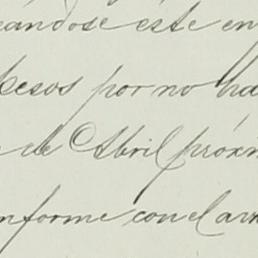 eándose este en
pesos por no ha
de Abril próxi
nforme con el ar